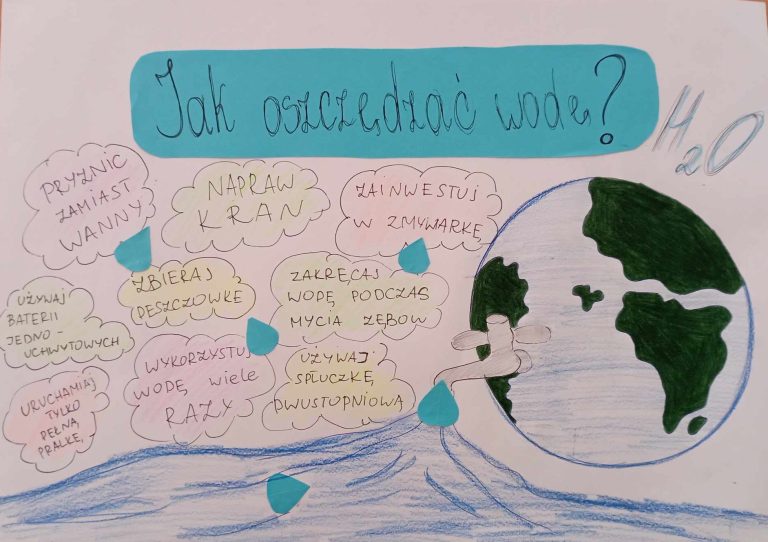 Jak oszczędzać wodę?
H2O
PRYZNIC
ZAMIAST
WANNY
NAPRAW
KRAN
ZAINWESTUJ
W ZMYWARKĘ
UŻYWAJ
BATERII
JEDNO-
UCHWYTOWYCH
ZBIERAJ
DESZCZÓWKĘ
ZAKRĘCAJ
WODĘ PODCZAS
MYCIA ZĘBÓW
URUCHAMIAJ
TYLKO
PEŁNĄ
PRALKĘ,
WYKORZYSTUJ
WODĘ wiele
RAZY
UŻYWAJ
SPŁUCZKĘ
DWUSTOPNIOWĄ